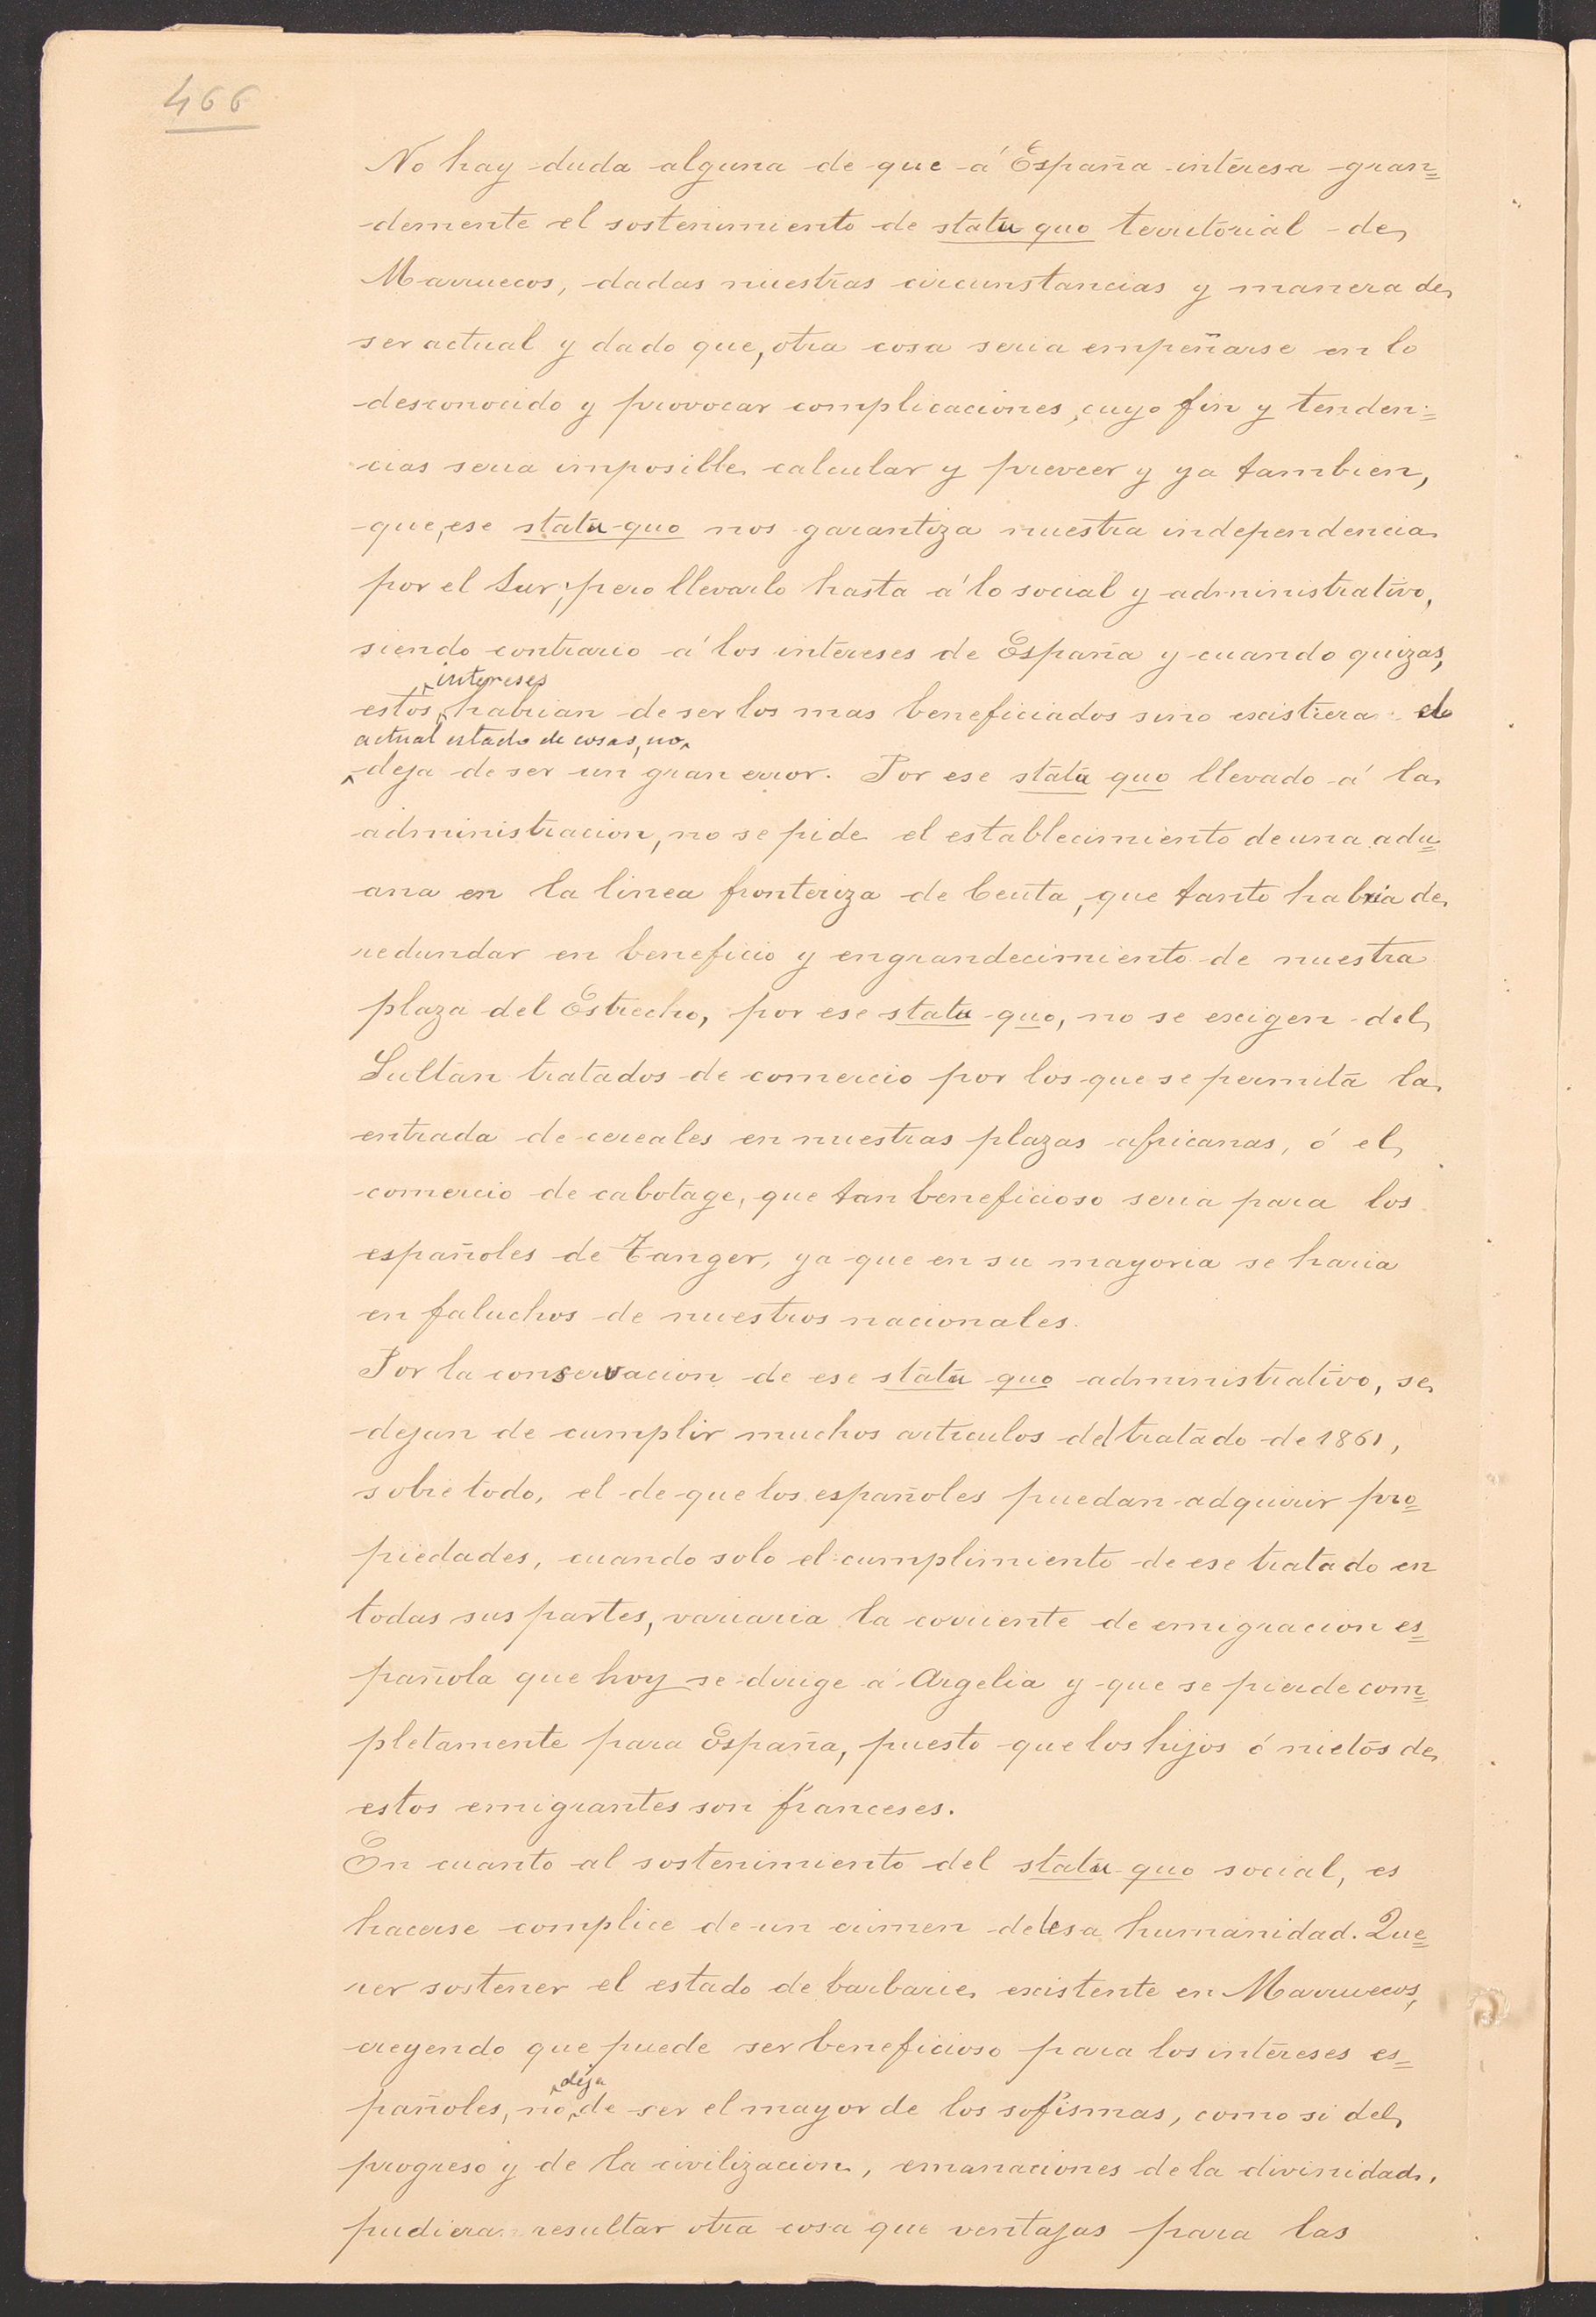 466
No hay duda alguna de que á España interesa gran=
demente el sostenimiento de statu quo territorial de
Marruecos, dadas nuestras circunstancias y manera de
ser actual y dado que, otra cosa seria empeñarse en lo
desconocido y provocar complicaciones, cuyo fin y tenden=
cias seria imposible calcular y preveer y ya tambien,
que, ese statu quo nos garantiza nuestra independencia
por el Sur; pero llevarlo hasta á lo social y administrativo,
siendo contrario á los intereses de España y cuando quizas,
intereses
estos, habrian de ser los mas beneficiados sino existiera el
actual estado de cosas, no
deja de ser un gran error. Por ese statu quo llevado á la
administracion, no se pide el establecimiento de una adu=
ana en la linea fronteriza de Ceuta, que tanto habria de
redundar en beneficio y engrandecimiento de nuestra
plaza del Estrecho, por ese statu quo, no se exigen del
Sultan tratados de comercio por los que se permita la
entrada de cereales en nuestras plazas africanas, ó el
comercio de cabotage, que tan beneficioso seria para los
españoles de Tanger, ya que en su mayoria se haria
en faluchos de nuestros nacionales.
Por la conservacion de ese statu quo administrativo, se
dejan de cumplir muchos articulos del tratado de 1861,
sobre todo, el de que los españoles puedan adquirir pro=
piedades, cuando solo el cumplimiento de ese tratado en
todas sus partes, variaria la corriente de emigracion es=
pañola que hoy se dirige á Argelia y que se pierde com=
pletamente para España, puesto que los hijos ó nietos de
estos emigrantes son franceses.
En cuanto al sostenimiento del statu quo social, es
hacerse complice de un crimen de lesa humanidad. Que=
rer sostener el estado de barbarie existente en Marruecos,
creyendo que puede ser beneficioso para los intereses es=
deja
pañoles, no de ser el mayor de los sofismas, como si del
progreso y de la civilizacion, emanaciones de la divinidad,
pudiera resultar otra cosa que ventajas para las